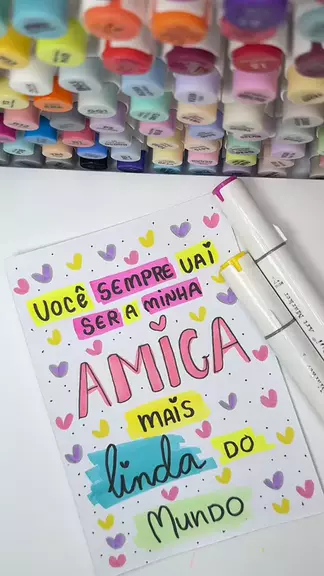 VOCÊ SEMPRE VAI
SER A MINHA
AMIGA
MAIS
linda DO
MUNDO